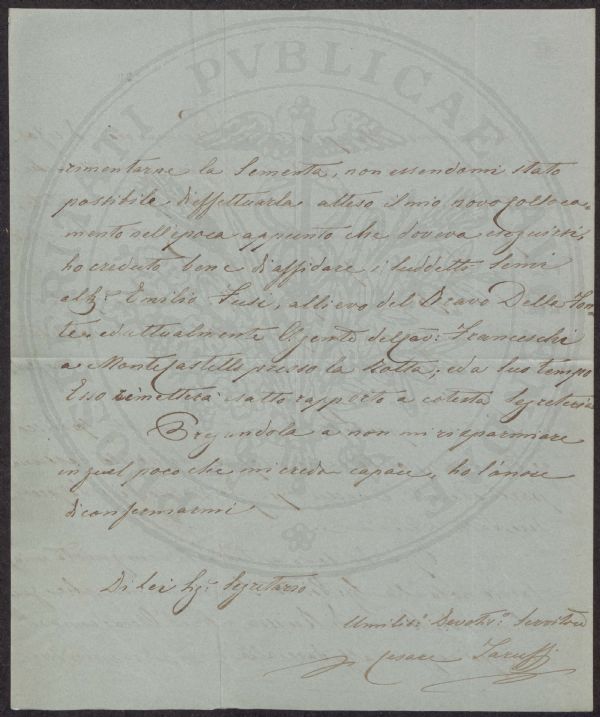 rimentarne la Sementa, non essendomi stato
possibile d'effettuarla atteso il mio novo colloca=
mento nell'epoca appunto che doveva eseguirsi,
ho creduto bene di affidare i suddetti Semi
al Sig.r Emilio Susi, allievo del Bravo Della Fon=
te, ed attualmente Agente del Cav: Franceschi
a Monte Castello presso la Rotta; ed a suo tempo
Esso rimetterà esatto rapporto a cotesta Segreteria
Pregandola a non mi risparmiare
in quel poco che mi creda capace, ho l'onore
di confermarmi
Di Lei Sig.r Segretario
Umiliss.o Devotis.o Servitore
Cesare Taruffi